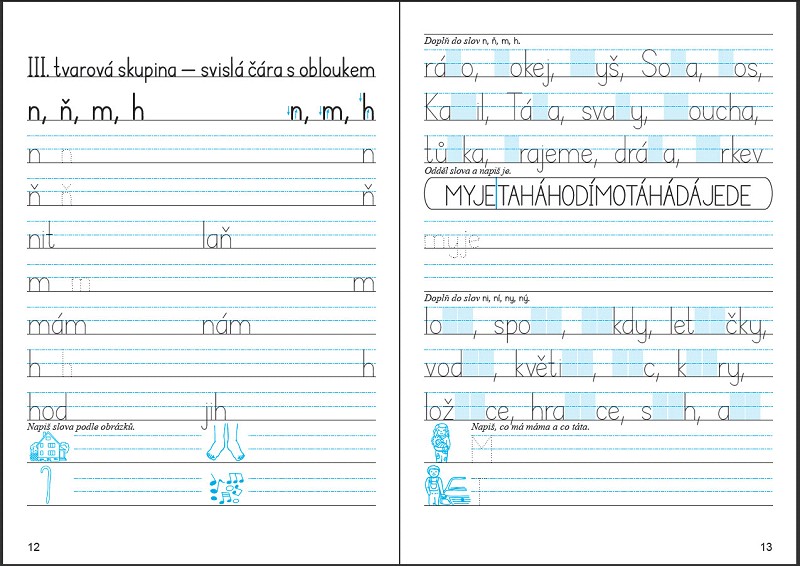 III. tvarová skupina — svislá čára s obloukem
n, ň, m, h n, m, h
n n n
ň ň ň
nit laň
m m m
mám nám
h h h
hod jih
Napiš slova podle obrázků.
12
Doplň do slov n, ň, m, h.
rá o, okej, yš, So a, os,
Ka il, Tá a, sva y, oucha,
tů ka, rajeme, drá a, rkev
Odděl slova a napiš je.
MYJETAHÁHODÍMOTÁHÁDÁJEDE
myje
Doplň do slov ni, ní, ny, ný.
lo , spo , kdy, let čky,
vod , květi , c, k ry,
lož ce, hra ce, s h, a
Napiš, co má máma a co táta.
M
T
13